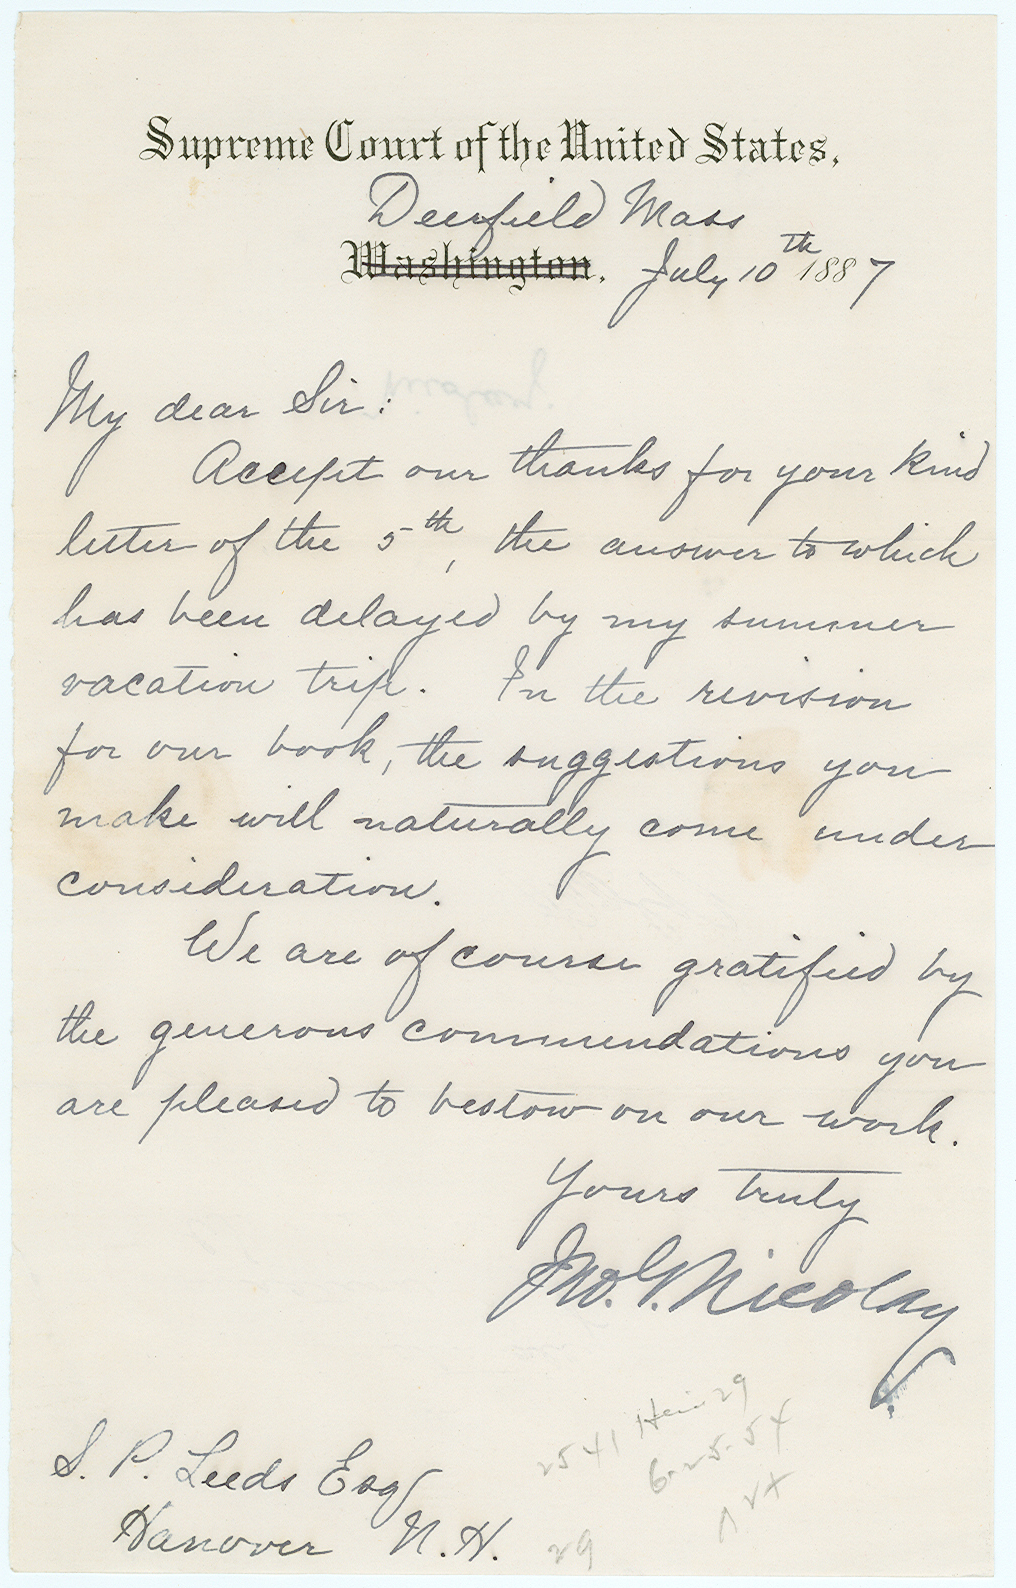 Supreme Court of the United States.
Deerfield Mass
Washington. July 10th 1887
My dear Sir:
Accept our thanks for your kind
letter of the 5th, the answer to which
has been delayed by my summer
vacation trip. In the revision
for our book, the suggestions you
make will naturally come under
consideration.
We are of course gratified by
the generous commendations you
are pleased to bestow on our work.
Yours truly
Jno. G. Nicolay
S. P. Leeds Esq
Hanover N. H.
2541
6-25-54
29